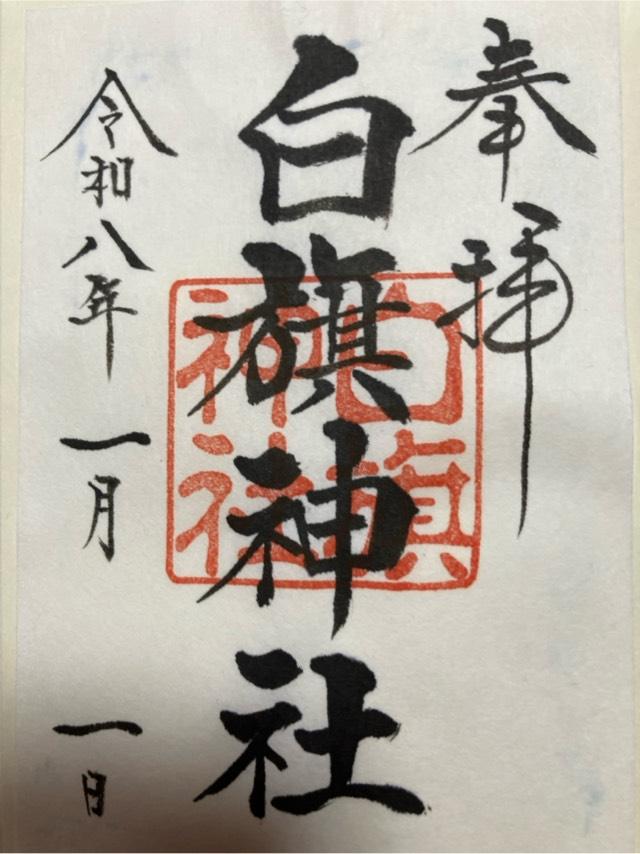 奉拝
白旗神社
白旗
神社
令和八年 一月 一日